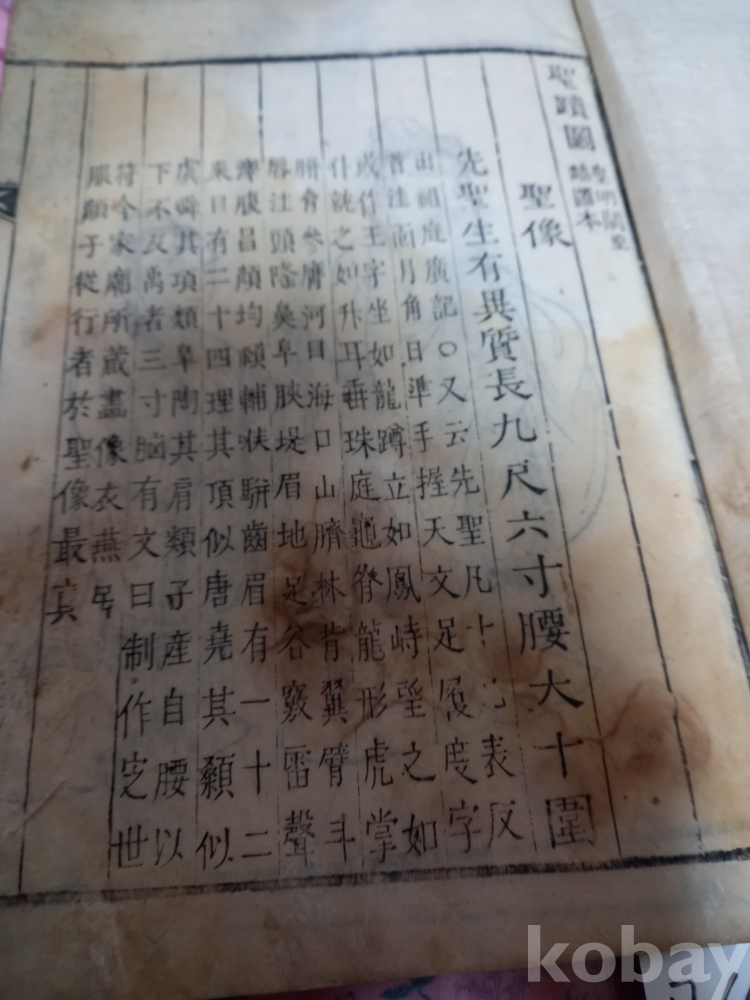 聖蹟圖
聖像
先聖生有異質長九尺六寸腰大十圍
出祖庭廣記○又云先聖凡表反
首洼面月角日準手握天文足履度字
或作王字坐如龍蹲立如鳳峙望之如
什就之如升耳垂珠庭龜脊龍形虎掌
胼脅參膺河目海口山臍林背翼臂斗
唇注頭隆鼻阜脥堤眉地足谷竅雷聲
澤腹昌顏均頤輔狀騈齒眉有一十二
釆目有二十四理其頂似唐堯其顙似
虞舜其項類皋陶其肩類子產自腰以
下不及禹者三寸胸有文曰制作定世
符今家廟所藏畫像衣燕居
服顏子從行者於聖像最真
kobay